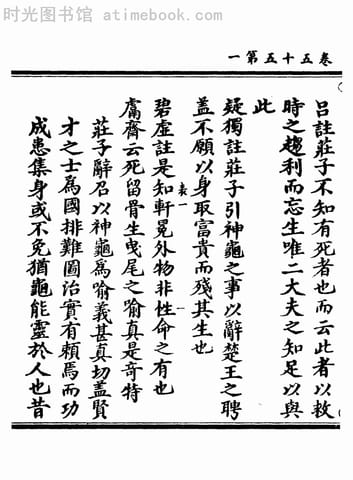 时光图书馆 atimebook.com
卷五十五第一
呂註莊子不知有死者也而云此者以救
時之趨利而忘生唯二大夫之知足以與
此
疑獨註莊子引神龜之事以辭楚王之聘
蓋不願以身取富貴而殘其生也
碧虛註是知軒冕外物非性命之有也
鬳齋云死留骨生曳尾之喻真是奇特
莊子辭召以神龜為喻義甚真切蓋賢
才之士為國排難圖治實有賴焉而功
成患集身或不免猶龜能靈於人也昔